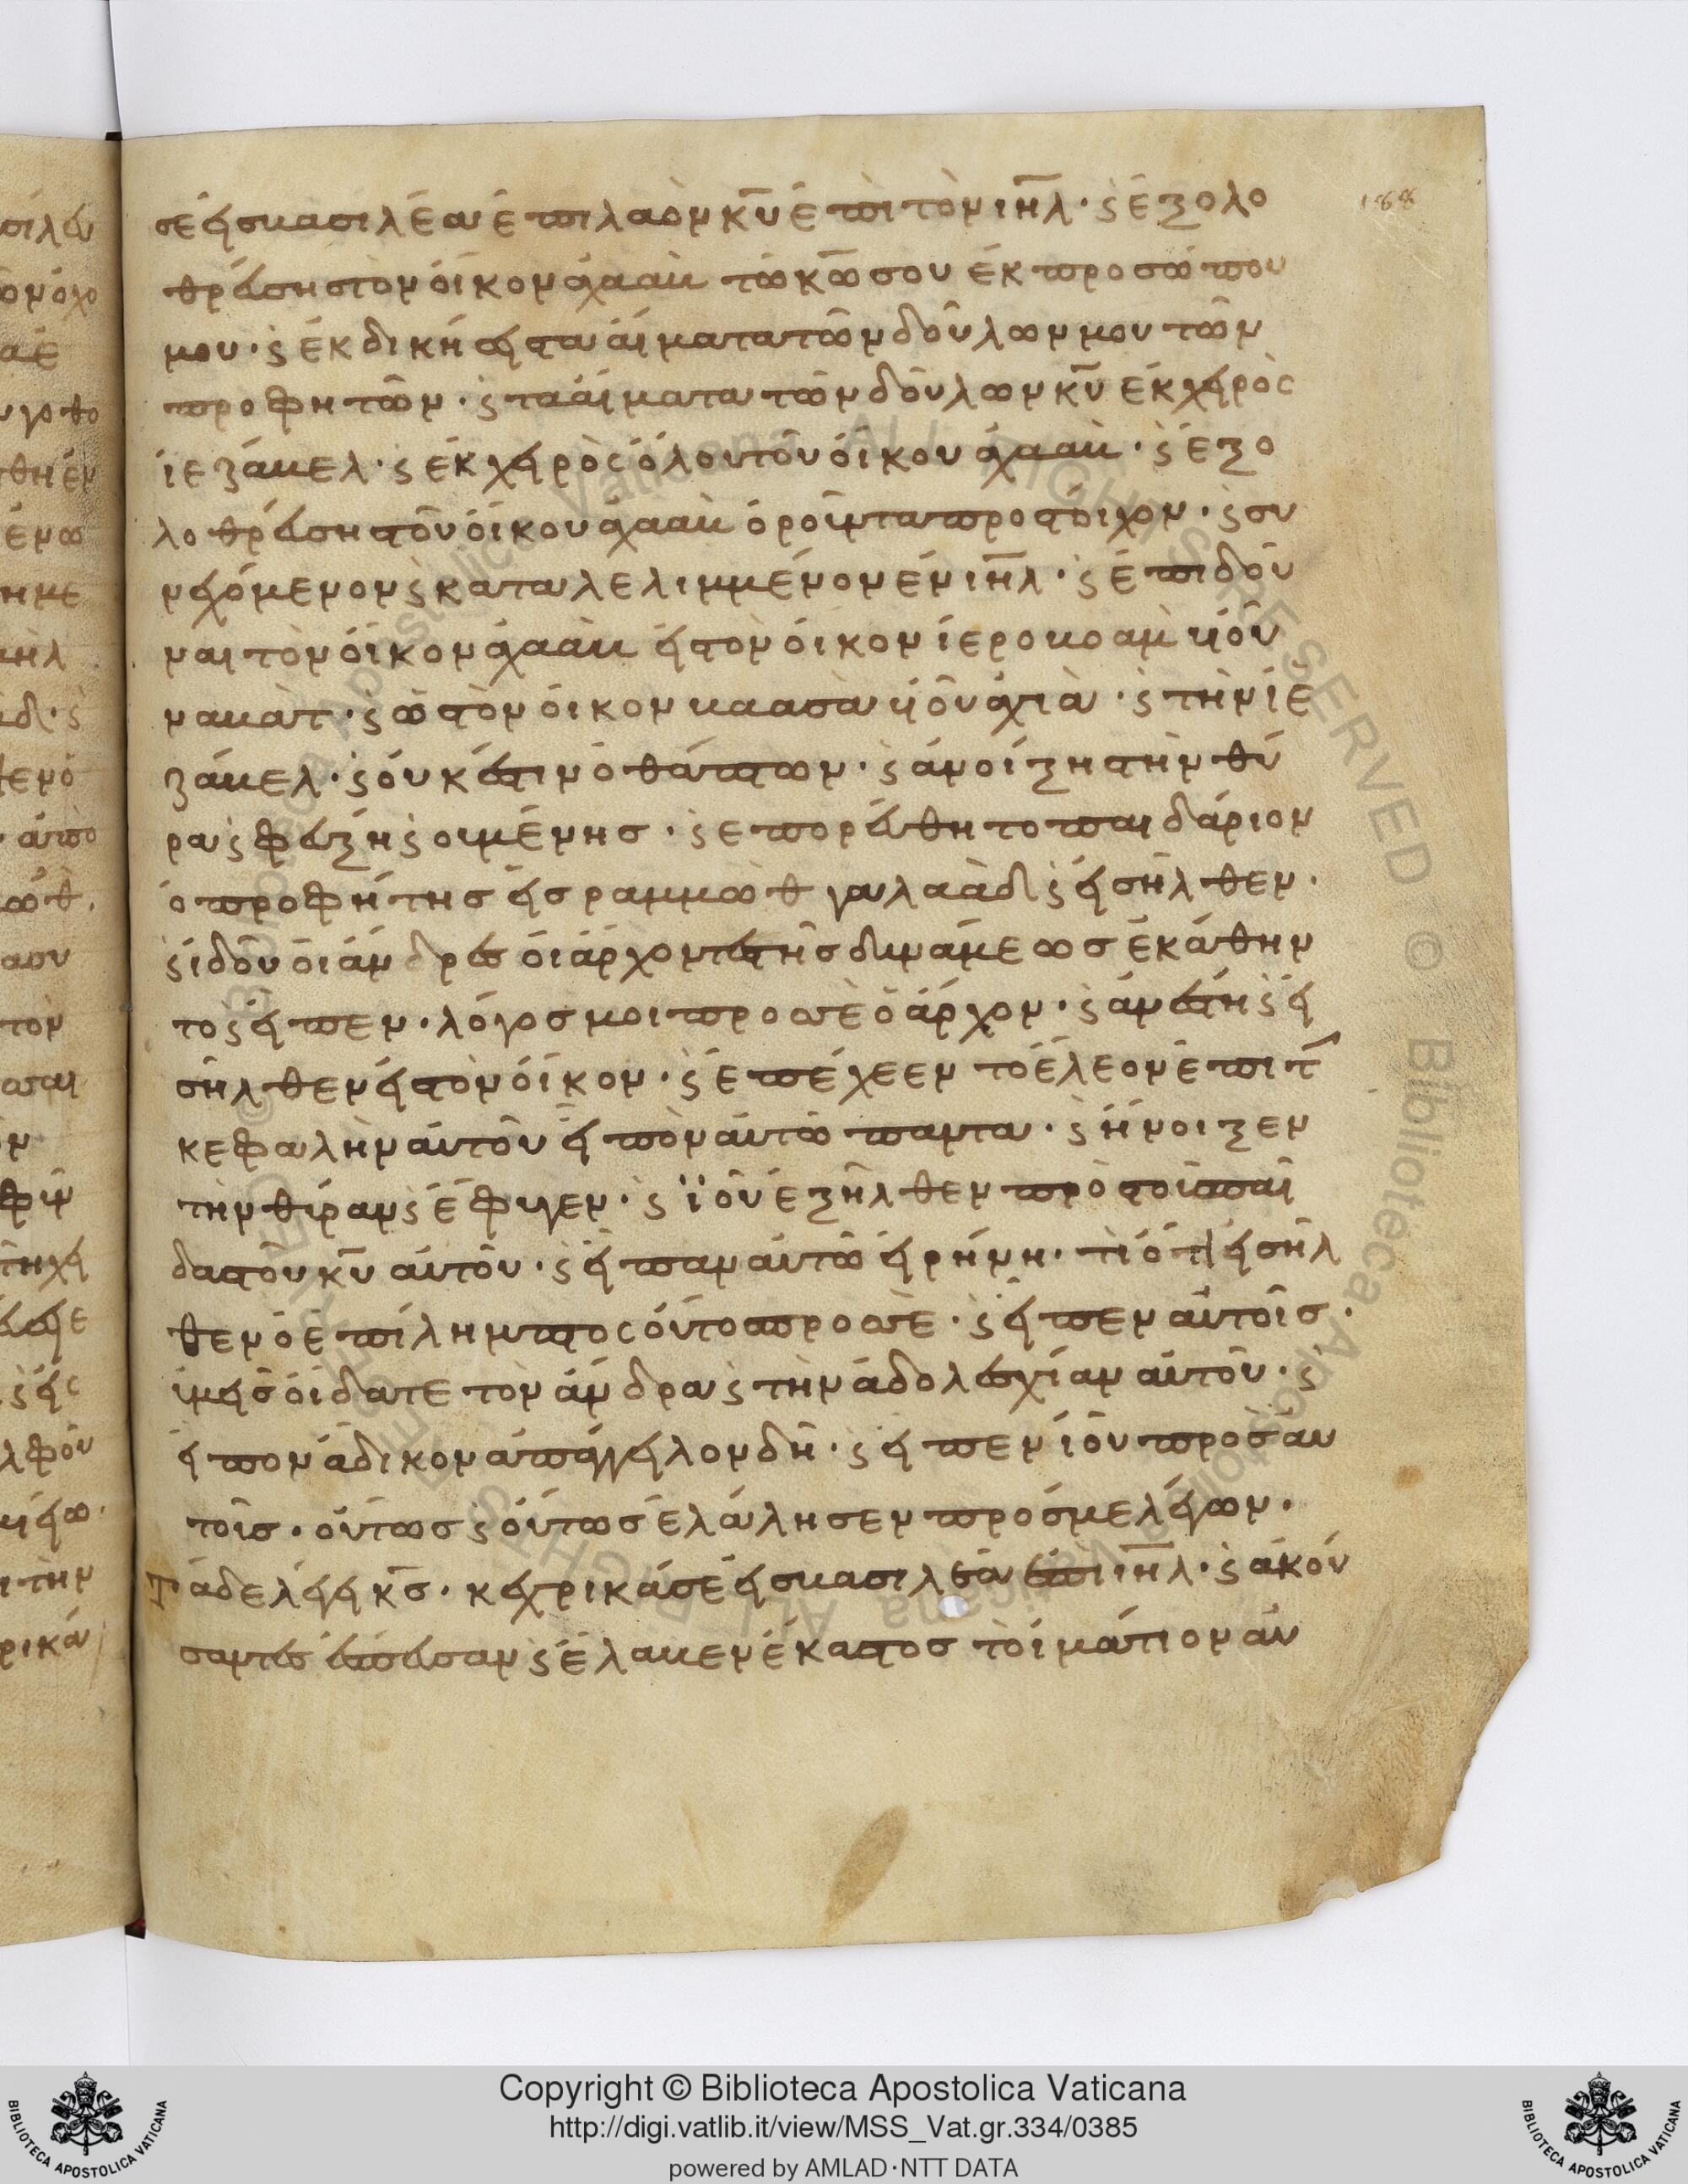 σε εἰς βασιλέα ἐπι λαὸν κ̅υ̅ ἐπὶ τὸν ι̅η̅λ̅· ϛ ἐξολο
θρεύσης τὸν οἶκον ἀχαὰβ τοῦ κ̅ω̅ σου ἐκ προσώπου
μου· ϛ ἐκδικήσεις τα αἵματα τῶν δούλων μου τῶν
προφητῶν· ϛ τὰ αἵματα τῶν δούλων κ̅υ̅ ἐκ χειρὸς
ἰεζάβελ· ϛ ἐκ χειρὸς ὅλου τοῦ οἴκου ἀχαὰβ· ϛ ἐξο
λοθρεύσης τοῦ οἴκου ἀχαὰβ οὐροῦντα προς τοῖχον· ϛ συ
νεχόμενον ϛ καταλελιμμένον ἐν ι̅η̅λ̅· ϛ ἐπιδοῦ
ναι τὸν οἶκον ἀχαὰβ ὡς τὸν οἶκον ἱεροβοὰμ υἱοῦ
ναβάτ· ϛ ὡς τὸν οἶκον βαασὰ υἱοῦ ἀχιὰ· ϛ τὴν ἰε
ζάβελ· ϛ οὐκ ἔστιν ὁ θάπτων· ϛ ἀνοίξης τὴν θύ
ρα ϛ φεύξη ϛ οὐ μένης· ϛ επορεύθη το παιδάριον
ὁ προφήτης εἰς ραμμὼθ γαλαὰδ ϛ εἰσῆλθεν·
ϛ ἰδοὺ οἱ ἄνδρες οἱ ἄρχοντες τῆς δυνάμεως ἐκάθην
το ϛ εἶπεν· λόγος μοι προς σὲ ὁ ἄρχον· ϛ ἀνέστη ϛ εἰ
σῆλθεν εἰς τὸν οἶκον· ϛ ἐπέχεεν τὸ ἔλεον ἐπι τ̅
κεφαλὴν αὐτοῦ εἰπὸν αὐτῶ παντα· ϛ ἤνοιξεν
τὴν θύραν ϛ ἔφυγεν· ϛ ϊοῦ ἐξῆλθεν πρὸς τοῖς παῖ
δας τοῦ κ̅υ̅ αὐτοῦ· ϛ εἶπαν αὐτῶ εἰρήνη· τὶ ὅτι εἰσῆλ
θεν ὁ ἐπίλημπτος οὗτος προς σὲ· ϛ εἶπεν αὐτοῖς·
ὑμεῖς οἴδατε τὸν ἄνδρα ϛ τὴν ἀδολεσχίαν αὐτοῦ· ϛ
εἶπον ἄδικον ἀπάγγειλον δὴ· ϛ εἶπεν ἰοῦ πρὸς αὐ
τοῖς· οὕτως ϛ οὕτως ἐλάλησεν προς με λέγων·
τάδε λέγει κ̅ς̅· κέχρικά σε εἰς βασιλέα ἐπὶ ι̅η̅λ̅· ϛ ἀκού
σαντες ἔσπευσαν ϛ ἔλαβεν ἕκαστος τὸ ἱμάτιον αὐ
188
Copyright © Biblioteca Apostolica Vaticana
http://digi.vatlib.it/view/MSS_Vat.gr.334/0385
powered by AMLAD·NTT DATA